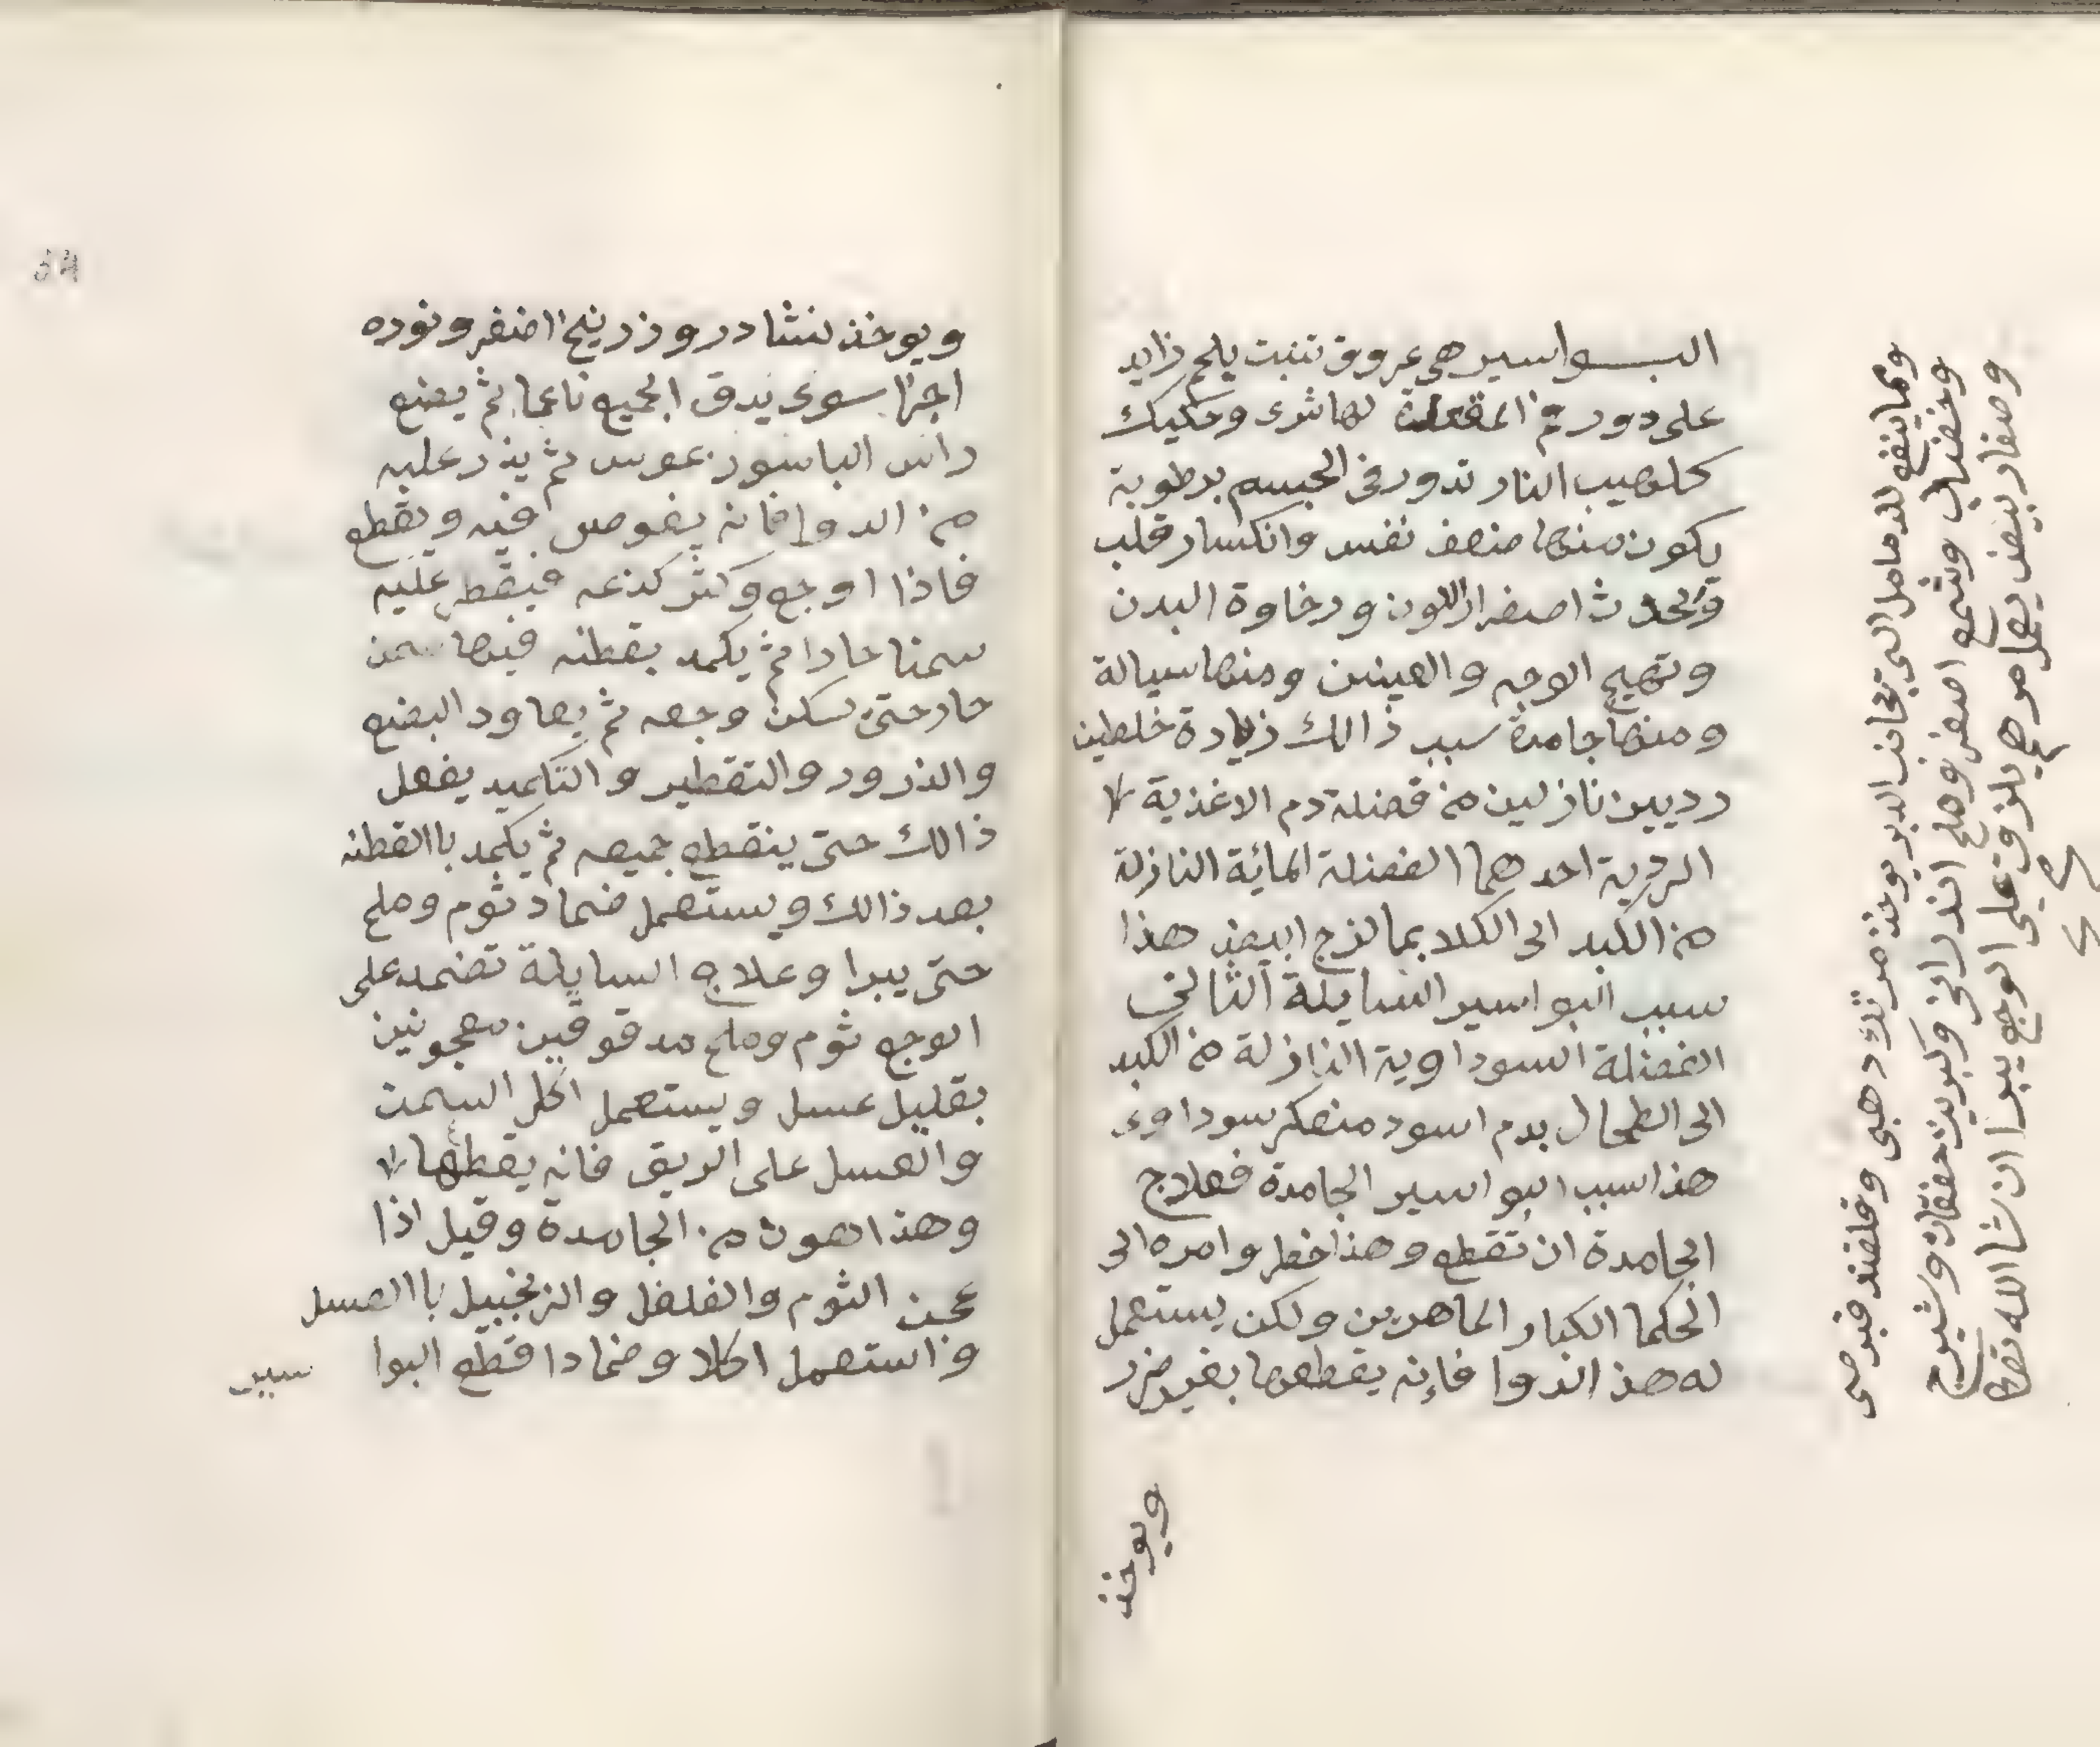 البواسير هي عروق تنبت بلحم زايد
على دور فم المقعدة لها شرى وحكيك
كلهيب النار تدور في الجسم برطوبة
يكون منها ضعف نفس وانكسار قلب
وتحدث اصفرار اللون ورخاوة البدن
وتهيج الوجه والعينين ومنها سيالة
ومنها جامدة سبب ذالك زيادة خلطين
رديين نازلين من فضلة دم الاغذية
الردية احدهما الفضلة المائية النازلة
من الكبد الى الكلا بما لزج ابيض هذا
سبب البواسير السايلة الثاني
الفضلة السوداوية النازلة من الكبد
الى الطحال بدم اسود منعكر سوداوى
هذا سبب البواسير الجامدة فعلاج
الجامدة ان تقطع وهذا خطر وامره الى
الحكما الكبار الماهرين ولكن يستعمل
له هذا الدوا فإنه يقطعها بغير ضرر
ويوخذ
ومما ينفع للدمامل التي تحاذ الدبر يوخذ مرتك دهبى وقلفند قبرصى
وخضاب وشمع اصفر وملح اندرانى وكبريت وشيرج
وصفار بيض يعمل مرهم يلزق على الوجع يبرا ان شا الله تعا
ويوخذ نشادر وزرنيخ اصفر ونوره
اجزا سوى يدق الجميع ناعما ثم يبضع
راس الباسور بموس ثم يذر عليه
من الدوا فانه يغوص فيه ويقطع
فاذا اوجع وكثر لذعه فيقطر عليه
سمنا حارا ثم يكمد بقطنه فيها سمن
حار حتى يسكن وجعه ثم يعاود البضع
والذرور والتقطير والتكميد يفعل
ذالك حتى ينقطع جميعه ثم يكمد باالقطنه
بعد ذالك ويستعمل ضماد ثوم وملح
حتى يبرا وعلاج السايلة تضمد على
الوجع ثوم وملح مدقوقين معجونين
بقليل عسل ويستعمل اكل السمن
والعسل على الريق فانه يقطعها
وهذا اهون من الجامدة وقيل اذا
عجن الثوم والفلفل والزنجبيل باالعسل
واستعمل اكلا وضمادا قطع البوا سير